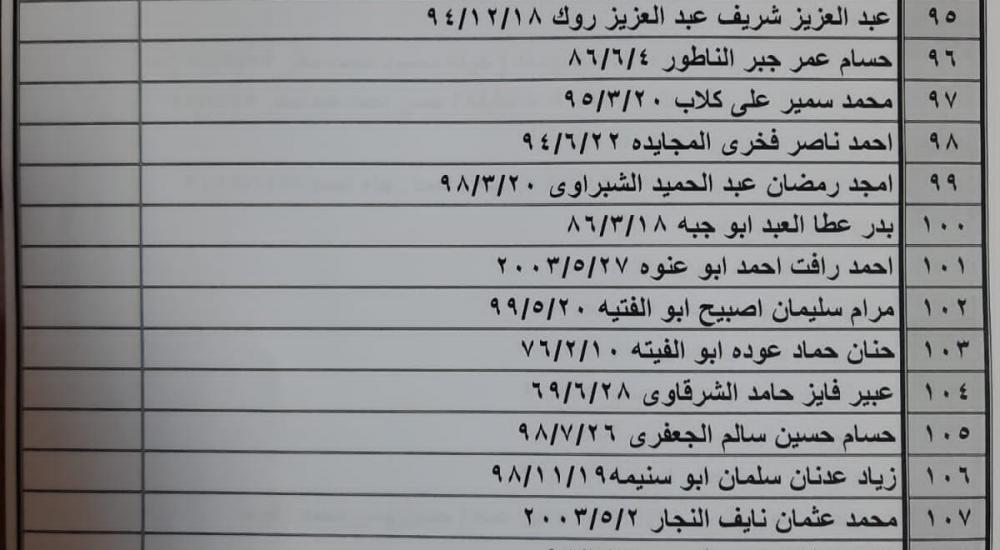 ٩٥ عبد العزيز شريف عبد العزيز روك ٩٤/١٢/١٨
٩٦ حسام عمر جبر الناطور ٨٦/٦/٤
٩٧ محمد سمير على كلاب ٩٥/٣/٢٠
٩٨ احمد ناصر فخرى المجايده ٩٤/٦/٢٢
٩٩ امجد رمضان عبد الحميد الشبراوى ٩٨/٣/٢٠
١٠٠ بدر عطا العبد ابو جبه ٨٦/٣/١٨
١٠١ احمد رافت احمد ابو عنوه ٢٠٠٣/٥/٢٧
١٠٢ مرام سليمان اصبيح ابو الفتيه ٩٩/٥/٢٠
١٠٣ حنان حماد عوده ابو الفيته ٧٦/٢/١٠
١٠٤ عبير فايز حامد الشرقاوى ٦٩/٦/٢٨
١٠٥ حسام حسين سالم الجعفرى ٩٨/٧/٢٦
١٠٦ زياد عدنان سلمان ابو سنيمه٩٨/١١/١٩
١٠٧ محمد عثمان نايف النجار ٢٠٠٣/٥/٢